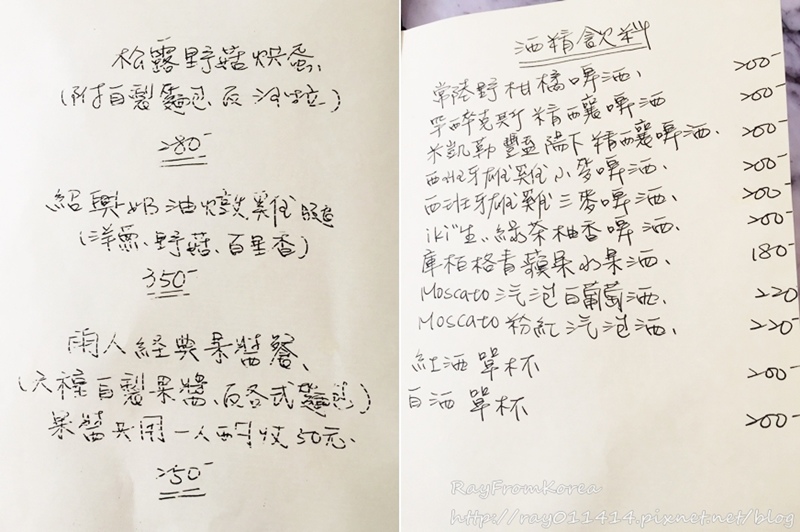 松露野菇烘蛋、
(附自製麵包、及沙拉)
280-
紹興奶油燉雞腿
(洋蔥、野菇、百里香)
350-
兩人經典果醬餐、
(六種自製果醬、及各式麵包)
果醬共用一人酌收50元、
250-
酒精飲料
常陸野柑橘啤酒、 200-
精釀啤酒 200-
米凱勒豐盛陽下精釀啤酒、 200-
西班牙雄雞小麥啤酒、 200-
西班牙雄雞三麥啤酒、 200-
iki"生"綠茶柚香啤酒、 200-
庫柏格青蘋果水果酒、 180-
Moscato 汽泡白葡萄酒、 220
Moscato 粉紅汽泡酒、 220-
紅酒 單杯 200-
白酒 單杯 200-
RayFromKorea
http://ray011414.pixnet.net/blog